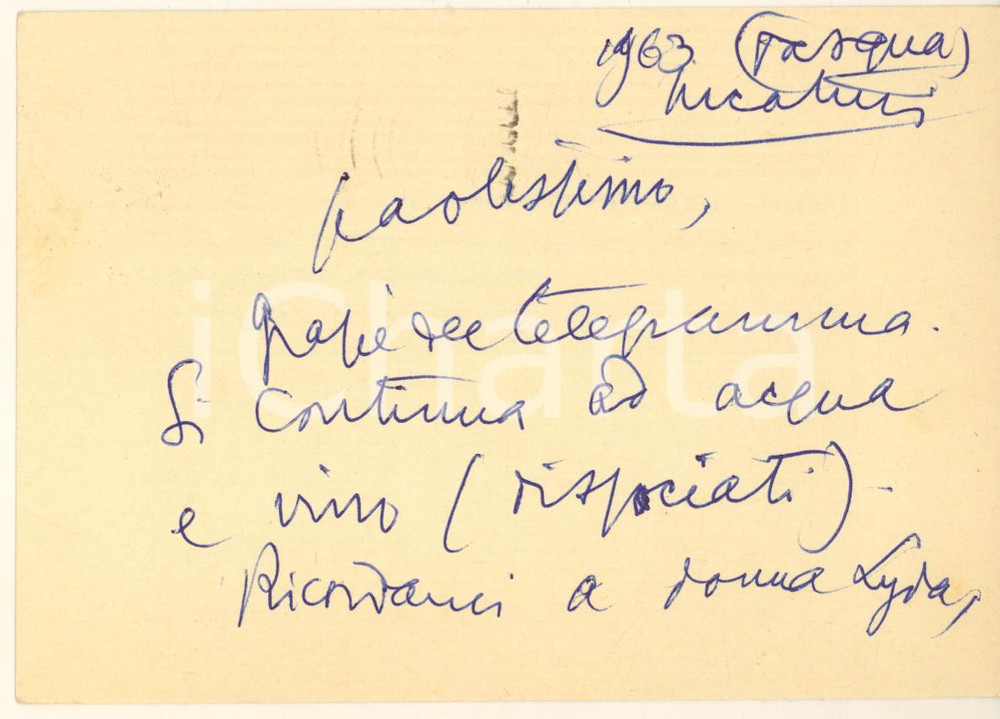 1963 (Pasqua)
paolissimo,
grazie del telegramma.
Si continua ad acqua
e vino (dissociati).
Ricordami a donna Lyda,
iCharta